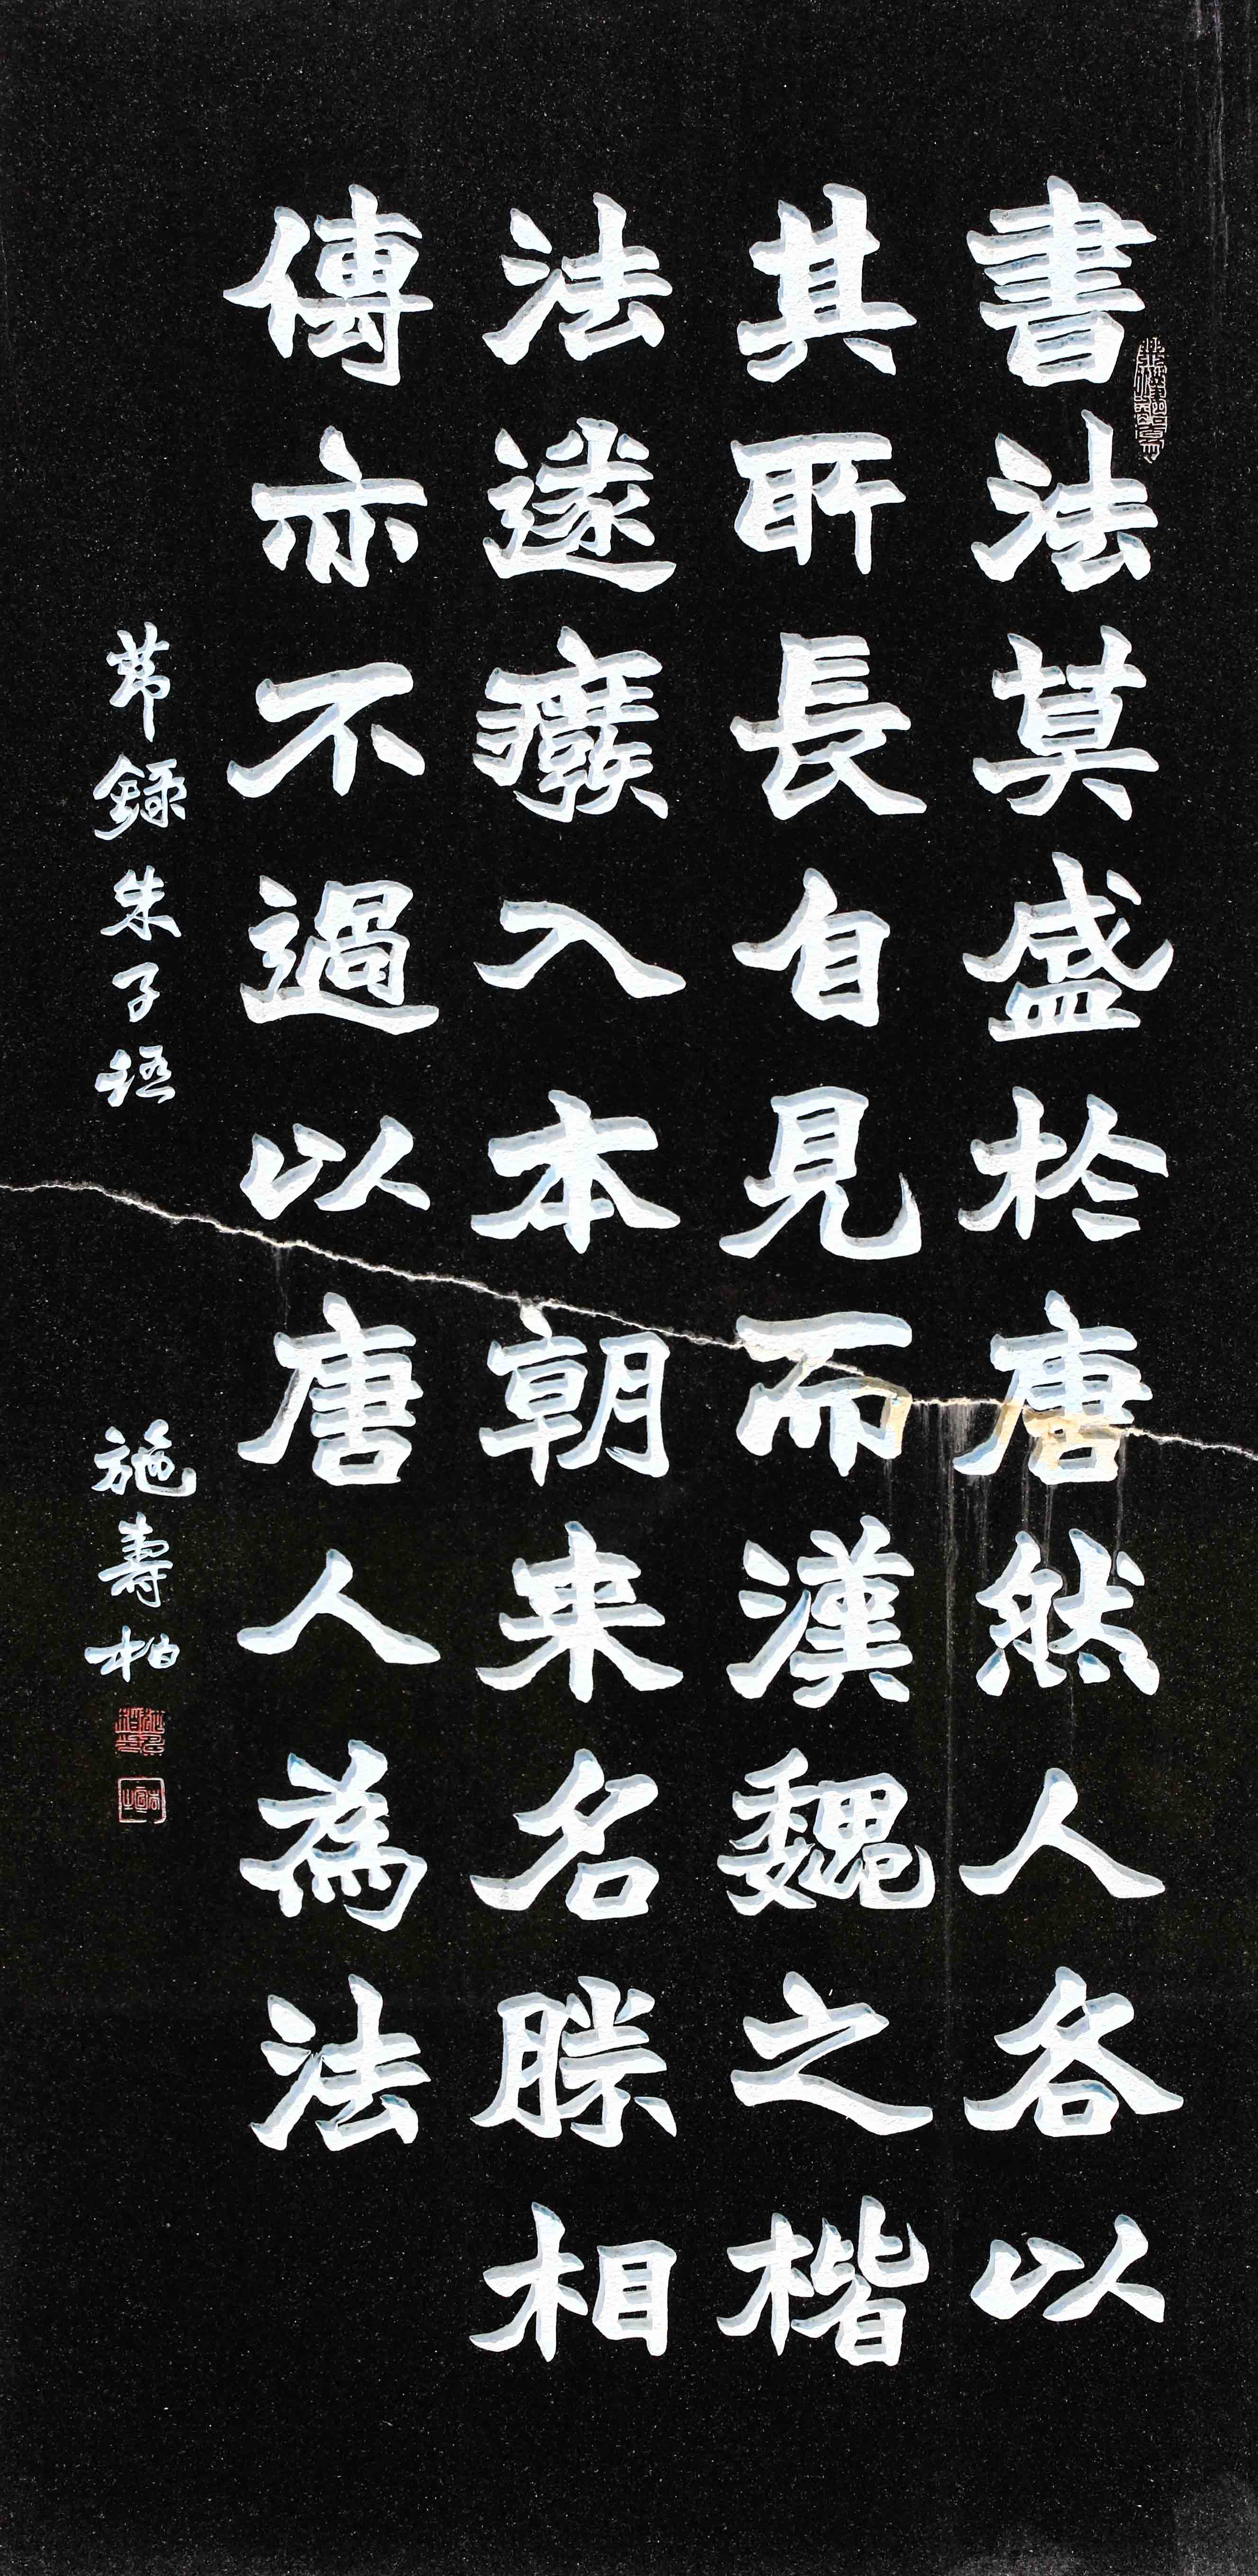 書法莫盛於唐然人各以
其所長自見而漢魏之楷
法遂癈入本朝来名勝相
傳亦不過以唐人為法
節錄朱子語
施壽柏